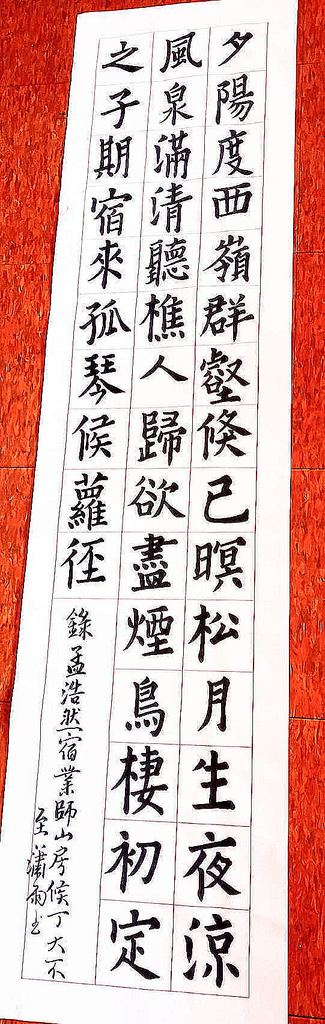 夕陽度西嶺群壑倏已暝松月生夜涼
風泉滿清聽樵人歸欲盡煙鳥棲初定
之子期宿來孤琴候蘿徑
錄孟浩然宿業師山房候丁大不
至瀟雨书